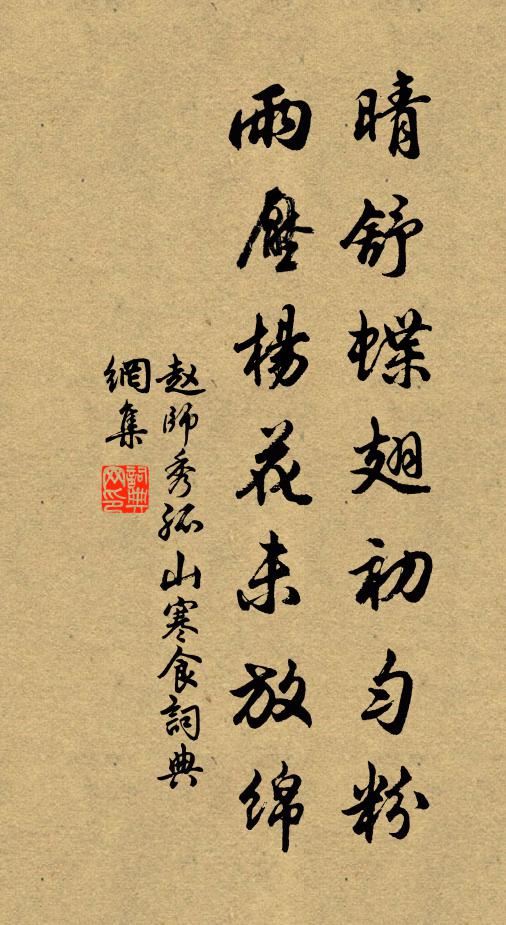 晴舒蝶翅初匀粉
雨壓楊花未放綿
赵師秀孤山寒食詞典
網集
詞典
网印